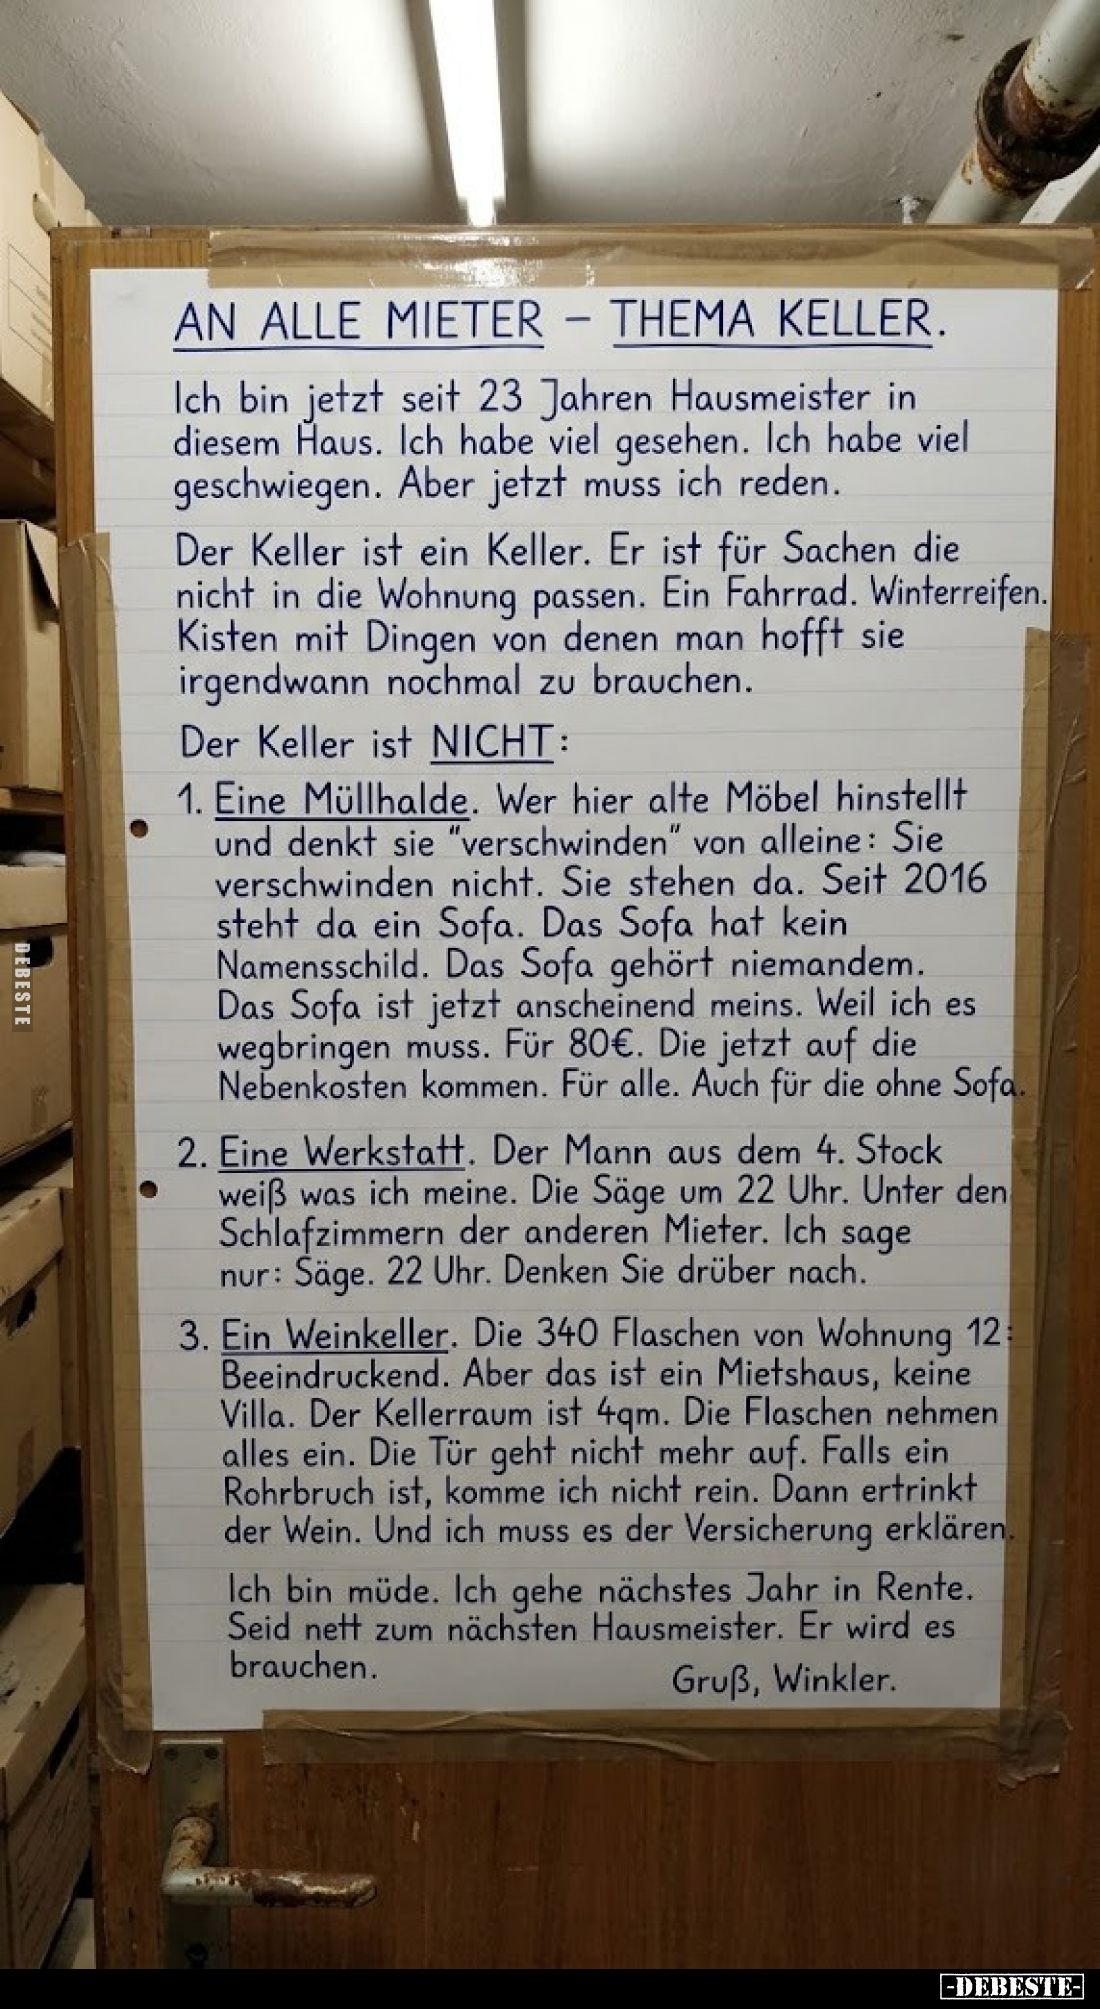 AN ALLE MIETER – THEMA KELLER.
Ich bin jetzt seit 23 Jahren Hausmeister in
diesem Haus. Ich habe viel gesehen. Ich habe viel
geschwiegen. Aber jetzt muss ich reden.
Der Keller ist ein Keller. Er ist für Sachen die
nicht in die Wohnung passen. Ein Fahrrad. Winterreifen.
Kisten mit Dingen von denen man hofft sie
irgendwann nochmal zu brauchen.
Der Keller ist NICHT:
1. Eine Müllhalde. Wer hier alte Möbel hinstellt
und denkt sie "verschwinden" von alleine: Sie
verschwinden nicht. Sie stehen da. Seit 2016
steht da ein Sofa. Das Sofa hat kein
Namensschild. Das Sofa gehört niemandem.
Das Sofa ist jetzt anscheinend meins. Weil ich es
wegbringen muss. Für 80€. Die jetzt auf die
Nebenkosten kommen. Für alle. Auch für die ohne Sofa.
2. Eine Werkstatt. Der Mann aus dem 4. Stock
weiß was ich meine. Die Säge um 22 Uhr. Unter den
Schlafzimmern der anderen Mieter. Ich sage
nur: Säge. 22 Uhr. Denken Sie drüber nach.
3. Ein Weinkeller. Die 340 Flaschen von Wohnung 12:
Beeindruckend. Aber das ist ein Mietshaus, keine
Villa. Der Kellerraum ist 4qm. Die Flaschen nehmen
alles ein. Die Tür geht nicht mehr auf. Falls ein
Rohrbruch ist, komme ich nicht rein. Dann ertrinkt
der Wein. Und ich muss es der Versicherung erklären.
Ich bin müde. Ich gehe nächstes Jahr in Rente.
Seid nett zum nächsten Hausmeister. Er wird es
brauchen.
Gruß, Winkler.
DEBESTE
-DEBESTE-